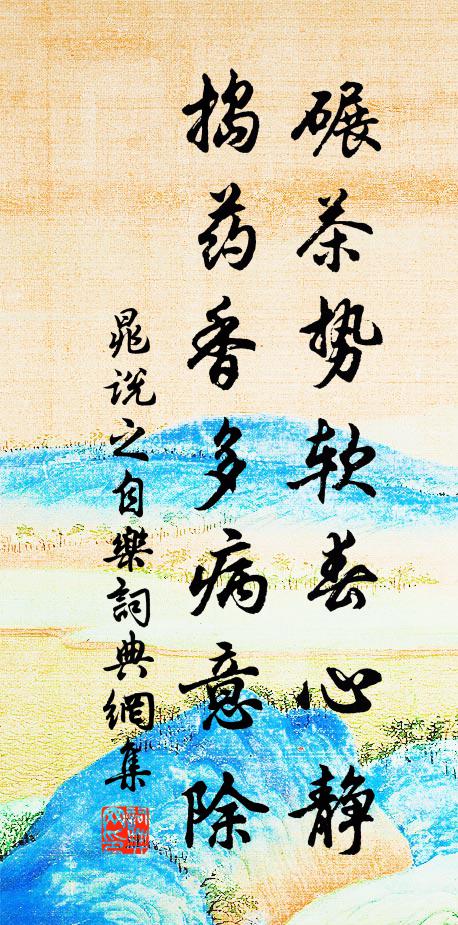 碾茶势软春心静
捣药香多病意除
晁说之自樂詞典網集